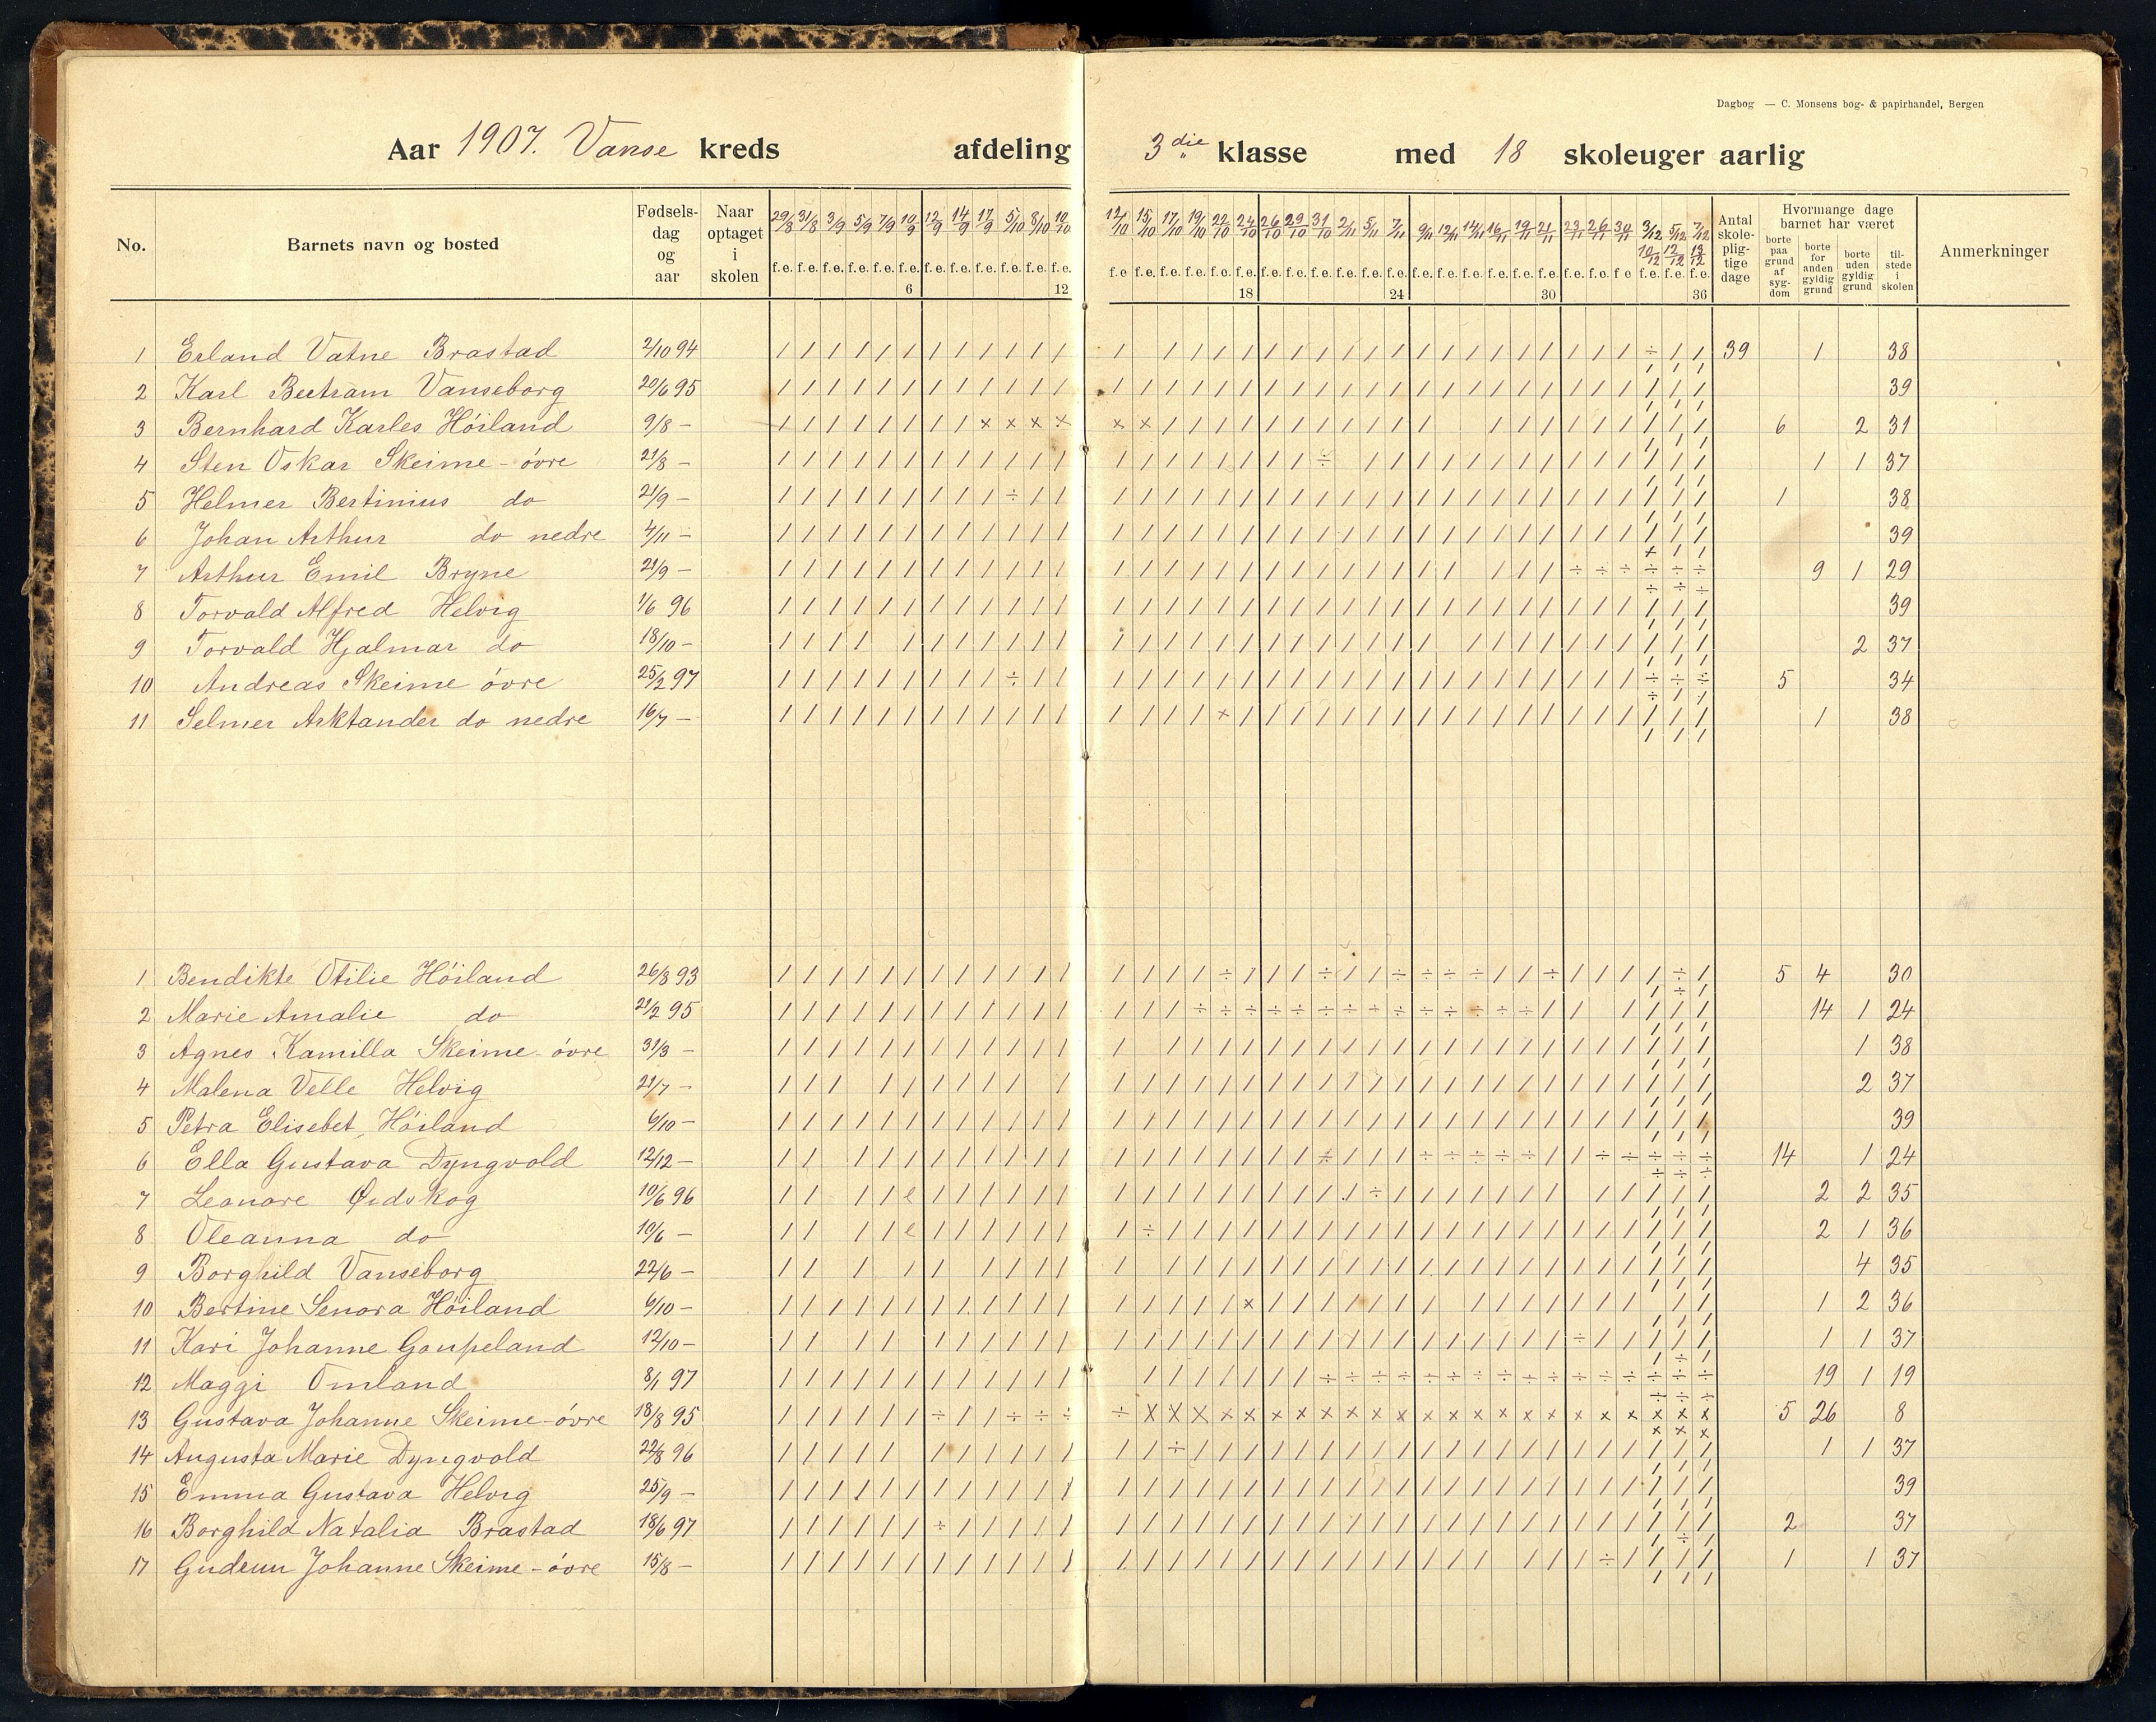 Dagbog — C. Monsens bog- & papirhandel, Bergen
Aar 1907. Vanse kreds afdeling 3die klasse med 18 skoleuger aarlig
No. Barnets navn og bosted Fødsels-dag og aar Naar optaget i skolen 29/8 31/8 3/9 5/9 7/9 10/9 12/9 14/9 17/9 5/10 8/10 10/10 12/10 15/10 17/10 19/10 22/10 24/10 26/10 29/10 31/10 2/11 5/11 7/11 9/11 12/11 14/11 16/11 19/11 21/11 23/11 26/11 30/11 3/12 5/12 7/12 Antal skole-plig-tige dage Hvormange dage barnet har været Anmerkninger
10/12 12/12 13/12 borte paa grund af syg-dom borte for anden gyldig grund borte uden gyldig grund til-stede i skolen
f.e. f.e. f.e. f.e. f.e. f.e. f.e. f.e. f.e. f.e. f.e. f.e. f.e f.e. f.e. f.e. f.e. f.e. f.e. f.e. f.e. f.e. f.e. f.e. f.e. f.e. f.e. f.e. f.e. f.e. f.e. f.e. f e f.e. f.e. f.e.
6 12 18 24 30 36
1 Erland Vatne Brastad 2/10 94 / / / / / / / / / / / / / / / / / / / / / / / / / / / / / / / / ÷ / / 39 1 38
2 Karl Bertram Vanseborg 20/6 95 39
3 Bernhard Karles Höiland 9/8 — 6 2 31
4 Sten Oskar Skeime - övre 21/8 — 1 1 37
5 Helmer Bertinius do 21/9 — 1 38
6 Johan Arthur do nedre 4/11 — 39
7 Arthur Emil Bryne 21/9 — 9 1 29
8 Torvald Alfred Helvig 1/6 96 39
9 Torvald Hjalmar do 18/10 — 2 37
10 Andreas Skeime övre 25/2 97 5 34
11 Selmer Arktander do nedre 16/7 — 1 38
1 Bendikte Otilie Höiland 26/8 93 5 4 30
2 Marie Amalie do 21/2 95 14 1 24
3 Agnes Kamilla Skeime - övre 31/3 — 1 38
4 Malena Velle Helvig 21/7 — 2 37
5 Petra Elisebet Höiland 6/10 — 39
6 Ella Gustava Dyngvold 12/12 — 14 1 24
7 Leonore Øidskog 10/6 96 2 2 35
8 Oleanna do 10/6 — 2 1 36
9 Borghild Vanseborg 22/6 — 4 35
10 Bertine Senora Höiland 6/10 — 1 2 36
11 Kari Johanne Gaupeland 12/10 — 1 1 37
12 Maggi Omland 8/1 97 19 1 19
13 Gustava Johanne Skeime - övre 18/8 95 5 26 8
14 Augusta Marie Dyngvold 22/8 96 1 1 37
15 Emma Gustava Helvig 25/9 — 39
16 Borghild Natalia Brastad 18/6 97 2 37
17 Gudrun Johanne Skeime - övre 15/8 — 1 1 37